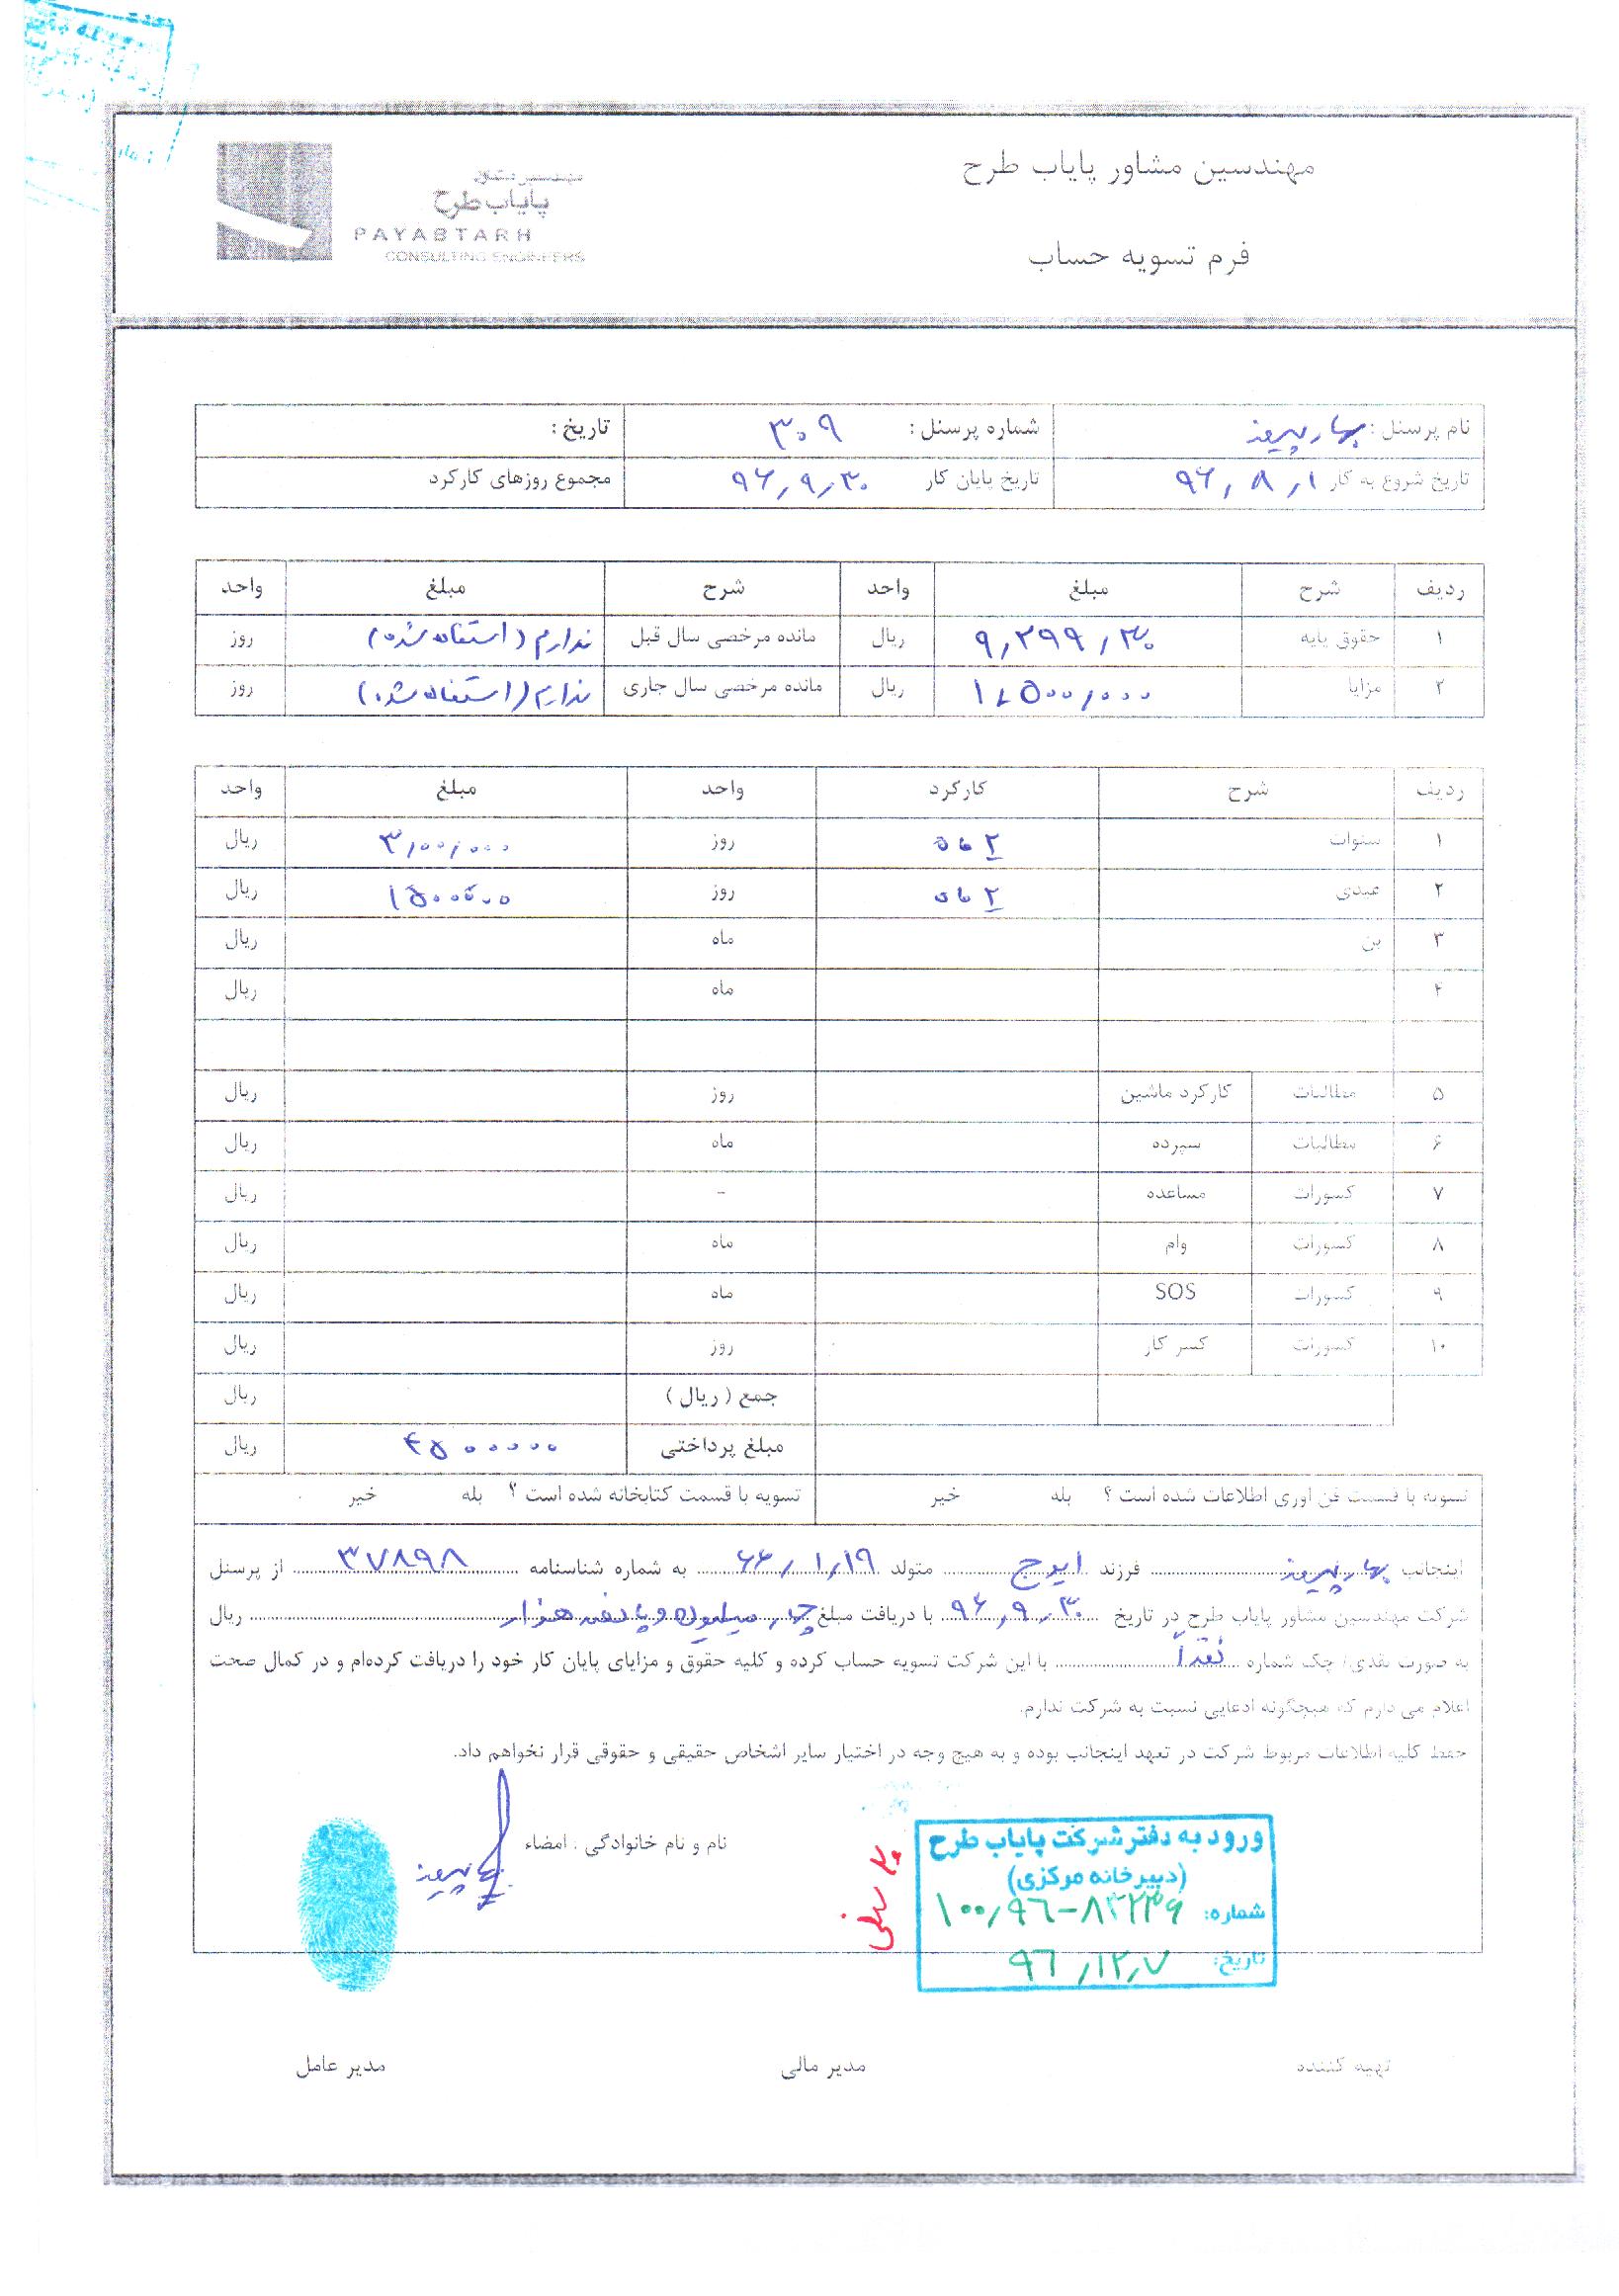 مهندسین مشاور پایاب طرح
مهندسین مشاور
پایاب طرح
PAYABTARH
CONSULTING ENGINEERS
فرم تسویه حساب
نام پرسنل : بهار پیروز شماره پرسنل : ۳۰۹ تاریخ :
تاریخ شروع به کار ۹۶,۸,۱ تاریخ پایان کار ۹۶,۹,۳۰ مجموع روزهای کارکرد
ردیف شرح مبلغ واحد شرح مبلغ واحد
۱ حقوق پایه ۹,۲۹۹,۳۰ ریال مانده مرخصی سال قبل ندارم (استفاده شده) روز
۲ مزایا ریال مانده مرخصی سال جاری ندارم (استفاده شده) روز
ردیف شرح کارکرد واحد مبلغ واحد
۱ سنوات ۲ ماه روز ۳,۰۰۰,۰۰۰ ریال
۲ عیدی ۲ ماه روز ۱۵۰۰۰۰۰ ریال
۳ بن ماه ریال
۴ ماه ریال
۵ مطالبات کارکرد ماشین روز ریال
۶ مطالبات سپرده ماه ریال
۷ کسورات مساعده - ریال
۸ کسورات وام ماه ریال
۹ کسورات SOS ماه ریال
۱۰ کسورات کسر کار روز ریال
جمع ( ریال ) ریال
مبلغ پرداختی ۴۵۰۰۰۰۰ ریال
تسویه با قسمت فن اوری اطلاعات شده است ؟ بله خیر تسویه با قسمت کتابخانه شده است ؟ بله خیر
اینجانب بهار پیروز فرزند ایرج متولد ۶۶,۱,۱۹ به شماره شناسنامه ۳۷۸۹۸ از پرسنل
شرکت مهندسین مشاور پایاب طرح در تاریخ ۹۶,۹,۳۰ با دریافت مبلغ چهار میلیون و پانصد هزار ریال
به صورت نقدی/ چک شماره نقداً با این شرکت تسویه حساب کرده و کلیه حقوق و مزایای پایان کار خود را دریافت کرده‌ام و در کمال صحت
اعلام می دارم که هیچگونه ادعایی نسبت به شرکت ندارم.
حفظ کلیه اطلاعات مربوط شرکت در تعهد اینجانب بوده و به هیچ وجه در اختیار سایر اشخاص حقیقی و حقوقی قرار نخواهم داد.
نام و نام خانوادگی : امضاء
بهار پیروز
ورود به دفتر شرکت پایاب طرح
(دبیرخانه مرکزی)
شماره: ۱۰۰,۹۶-۸۳۲۳۶
تاریخ: ۹۶,۱۲,۷
تهیه کننده مدیر مالی مدیر عامل